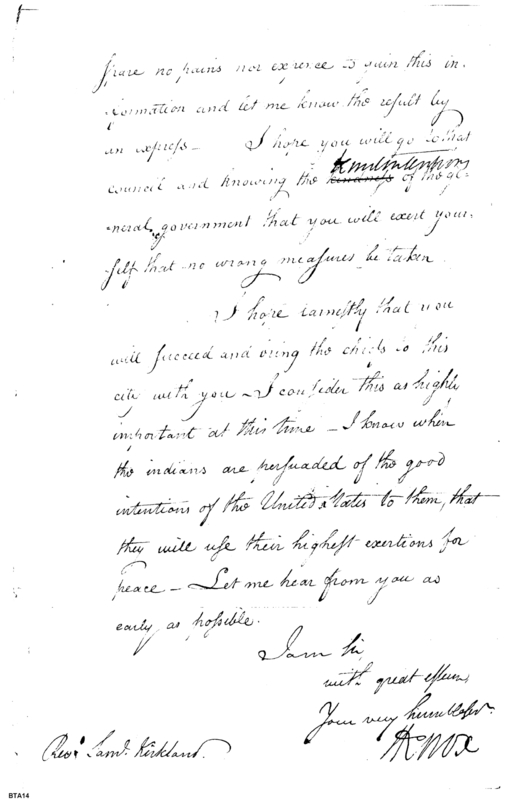 spare no pains nor expence to gain this in-
formation and let me know the result by
an express – I hope you will go to that
council and knowing the kindness kind intentions of the ge-
neral government that you will exert your-
self that no wrong measures be taken.
I hope earnestly that you
will succeed and bring the chiefs to this
city with you – I consider this as highly
important at this time – I know when
the indians are persuaded of the good
intentions of the United States to them, that
they will use their highest exertions for
peace – Let me hear from you as
early as possible.
I am Sir,
with great esteem,
Your very humble Servt.
HKnox
Revd. Saml. Kirkland.
BTA14